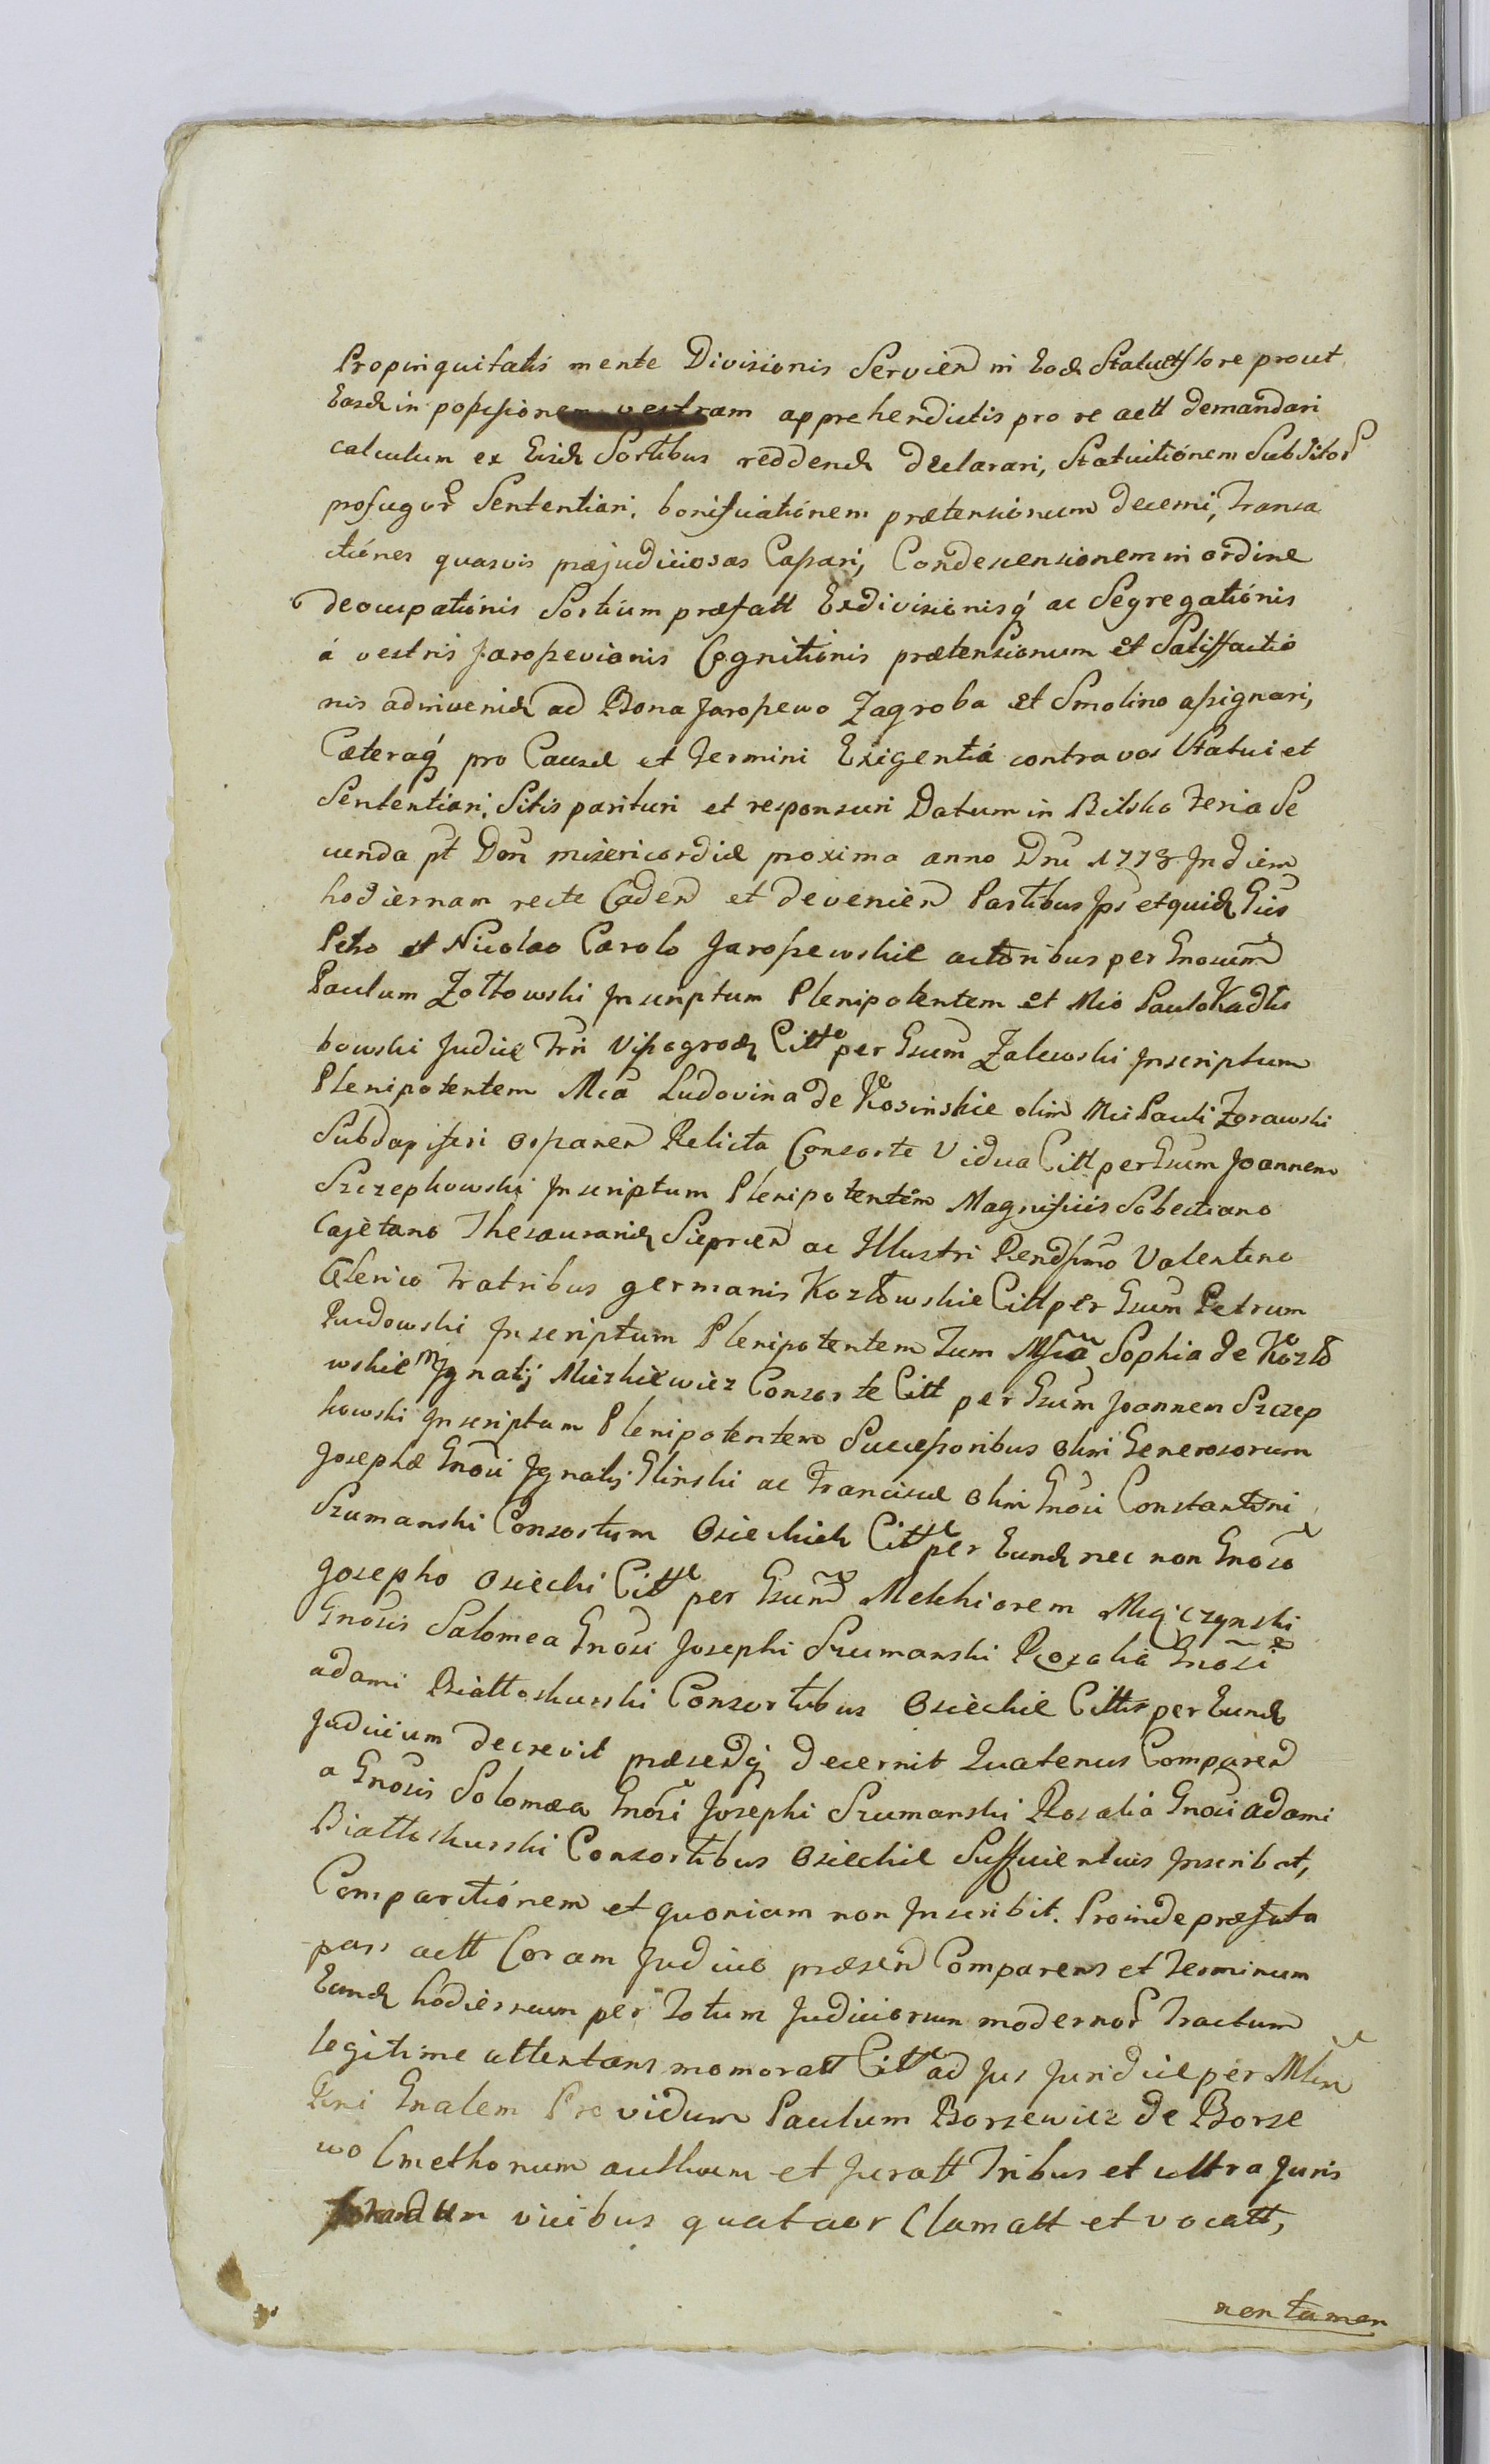 Propinquitatis mente Divisionis Servien in Eod Statu et flore prout
Easd in possessionem vestram apprehendistis pro re actt demandari
calculum ex Eisd Sortibus reddend declarari, Statuitiónem Subditor
profugor Sententiari, bonificatiónem prætensionum decerni, Transa
ctiónes quasvis præjudiciosas Cassari, Condescensionem in ordine
deoccupatiónis Sortium præfatt Exdivisionisq́ ac Segregatiónis
á vestris Jaroszevianis Cognitionis prætensionum et Satisfactio
nis adinvenid ad Bona Jaroszewo Zagroba et Smolino assignari,
Cæteraq́ pro Causæ et Termini Exigentiá contra vos Statui et
Sententiari, Sitis parituri et responsuri Datum in Bilsko Feria Se
cunda pt Don misericordiæ proxima anno Dni 1778 In diem
hodiernam recte Caden et devenien Partibus Ips et quid Gnis
Petro et Nicolao Carolo Jaroszewskie actoribus per Gnosum
Paulum Zółtowski Inscriptum Plenipotentem et Mco Paulo Kadłu
bowski Judice Trri Vissogrod Citto per Gsum Zalewski Inscriptum
Plenipotentem Mca Ludovina de Kosinskie olim Mci Pauli Żórawski
Subdapiferi Ciechanen Relicta Consorte Vidua Citt per Gsum Joannem
Szczepkowski Inscriptum Plenipotentem Magnificis Sebestiano
Cajetano Thesaurarid Sieprcen ac Illustri Rendssimo Valentino
Clerico Fratribus germanis Kozłowskie Citt per Gsum Petrum
Rudowski Inscriptum Plenipotentem Tum Msca Sophia de Kozło
wskie M Ignatij Mieszkiewicz Consorte Citt per Gsum Joannem Szczep
kowski Inscriptum Plenipotentem Successoribus olim Generosorum
Josephæ Gnosi Ignatij Glinski ac Franciscæ olim Gnosi Constantini
Szumanski Consortum Osiechich Citt per Eund nec non Gnoso
Josepho Osiecki Citt per Gsum Melchiorem Mięczynski
Gnosis Salomea Gnosi Josephi Szumanski Rozalia Gnosi
adami Białłoskurski Consortibus Osieckie Cittis per Eund
Judicium decrevit præsenq́ decernit Quatenus Comparen
a Gnosis Solomæa Gnosi Josephi Szumanski Rosalia Gnosi adami
Białłoskurski Consortibus Osieckie Sufficientius Inscribat,
Comparitiónem et quoniam non Inscribit. Proinde præfata
pars actt Coram Judicio præsen Comparens et Terminum
Eund hodiernum per Totum Judiciorum modernor Tractum
legitime attentans memoratt Citt ad Jus Juridice per Min
Rni Gnalem Providum Paulum Borzewicz de Borze
wo Cmethonum authum et Juratt Tribus et ultra Juris
vicibus quatuor Clamatt et vocatt,
non tamen